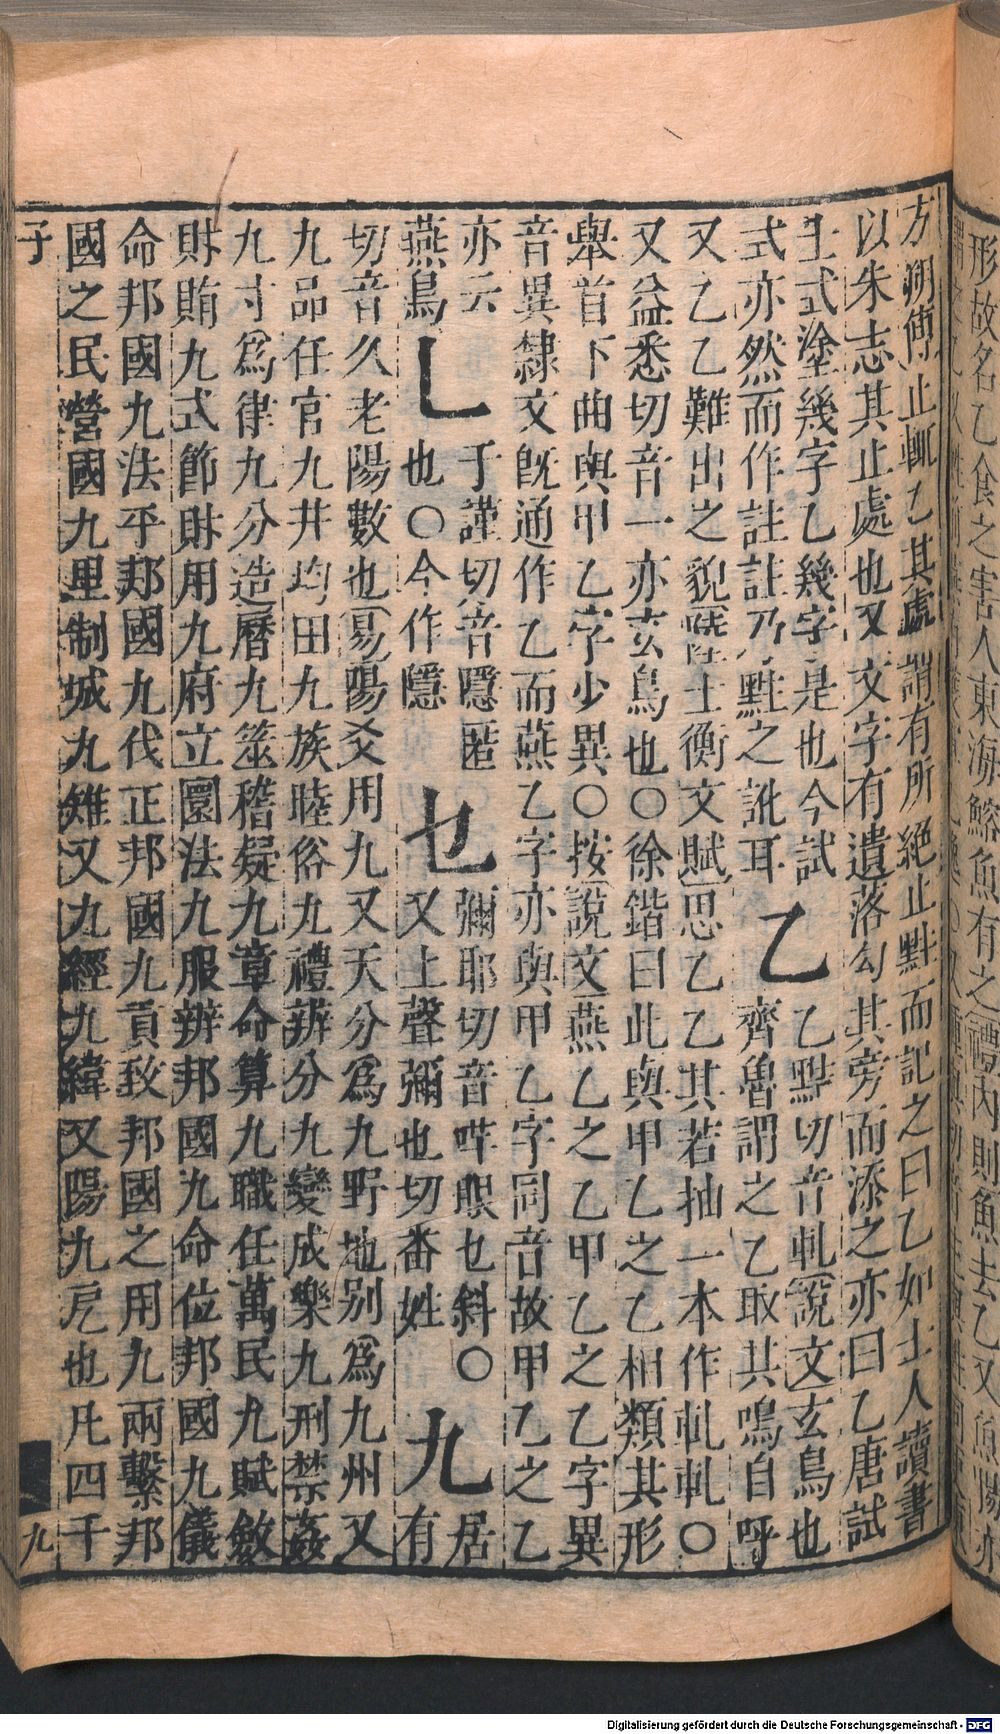 形故名乙食之害人東海鰫魚有之禮內則魚去乙又魚腸亦
方朔傳止輒乙其處謂有所絕止點而記之曰乙如士人讀書
以朱志其止處也又文字有遺落勾其旁而添之亦曰乙唐試
士式塗幾字乙幾字是也今試
式亦然而作註註乃黈之訛耳
乙
乙黠切音軋說文玄鳥也
齊魯謂之乙取其鳴自呼
又乙乙難出之貌陸士衡文賦思乙乙其若抽一本作軋軋○
又益悉切音一亦玄鳥也○徐鍇曰此與甲乙之乙相類其形
舉首下曲與甲乙字少異○按說文燕乙之乙甲乙之乙字異
音異隸文旣通作乙而燕乙字亦與甲乙字同音故甲乙之乙
亦云
燕鳥
乚
于謹切音隱匿
也○今作隱
乜
彌耶切音哶眼乜斜○
又上聲彌也切番姓
九
居
有
切音久老陽數也易陽爻用九又天分爲九野地別爲九州又
九品任官九井均田九族睦俗九禮辨分九變成樂九刑禁姦
九寸爲律九分造曆九筮稽疑九章命算九職任萬民九賦斂
財賄九式節財用九府立圜法九服辨邦國九命位邦國九儀
命邦國九法平邦國九伐正邦國九貢致邦國之用九兩繫邦
國之民營國九里制城九雉又九經九緯又陽九戹也凡四千
子
九
Digitalisierung gefördert durch die Deutsche Forschungsgemeinschaft - DFG